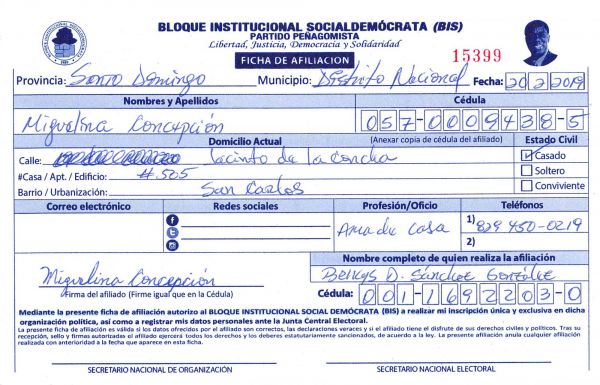 BLOQUE INSTITUCIONAL SOCIALDEMÓCRATA (BIS)
PARTIDO PEÑAGOMISTA
Libertad, Justicia, Democracia y Solidaridad
FICHA DE AFILIACION
15399
Provincia: Santo Domingo Municipio: Distrito Nacional Fecha: 20 2 2019
Nombres y Apellidos Cédula
Miguelina Concepción 057-0009438-5
Domicilio Actual (Anexar copia de cédula del afiliado) Estado Civil
Calle: Jacinto de la Concha Casado
#Casa / Apt. / Edificio: #.505 Soltero
Barrio / Urbanización: San Carlos Conviviente
Correo electrónico Redes sociales Profesión/Oficio Teléfonos
Ama de Casa 1) 829 450-0219
2)
Nombre completo de quien realiza la afiliación
Miguelina Concepción Belkys D. Sánchez González
Firma del afiliado (Firme igual que en la Cédula) Cédula: 001-1692203-0
Mediante la presente ficha de afiliación autorizo al BLOQUE INSTITUCIONAL SOCIAL DEMÓCRATA (BIS) a realizar mi inscripción única y exclusiva en dicha
organización política, así como a registrar mis datos personales ante la Junta Central Electoral.
La presente ficha de afiliación es válida si los datos ofrecidos por el afiliado son correctos, las declaraciones veraces y si el afiliado tiene el disfrute de sus derechos civiles y políticos. Tras su
recepción, sello y firmas autorizadas el afiliado ejercerá todos los derechos y los deberes estatutariamente sancionados, de acuerdo a la ley. La presente afiliación anula cualquier afiliación
realizada con anterioridad a la fecha que aparece en esta ficha.
SECRETARIO NACIONAL DE ORGANIZACIÓN SECRETARIO NACIONAL ELECTORAL